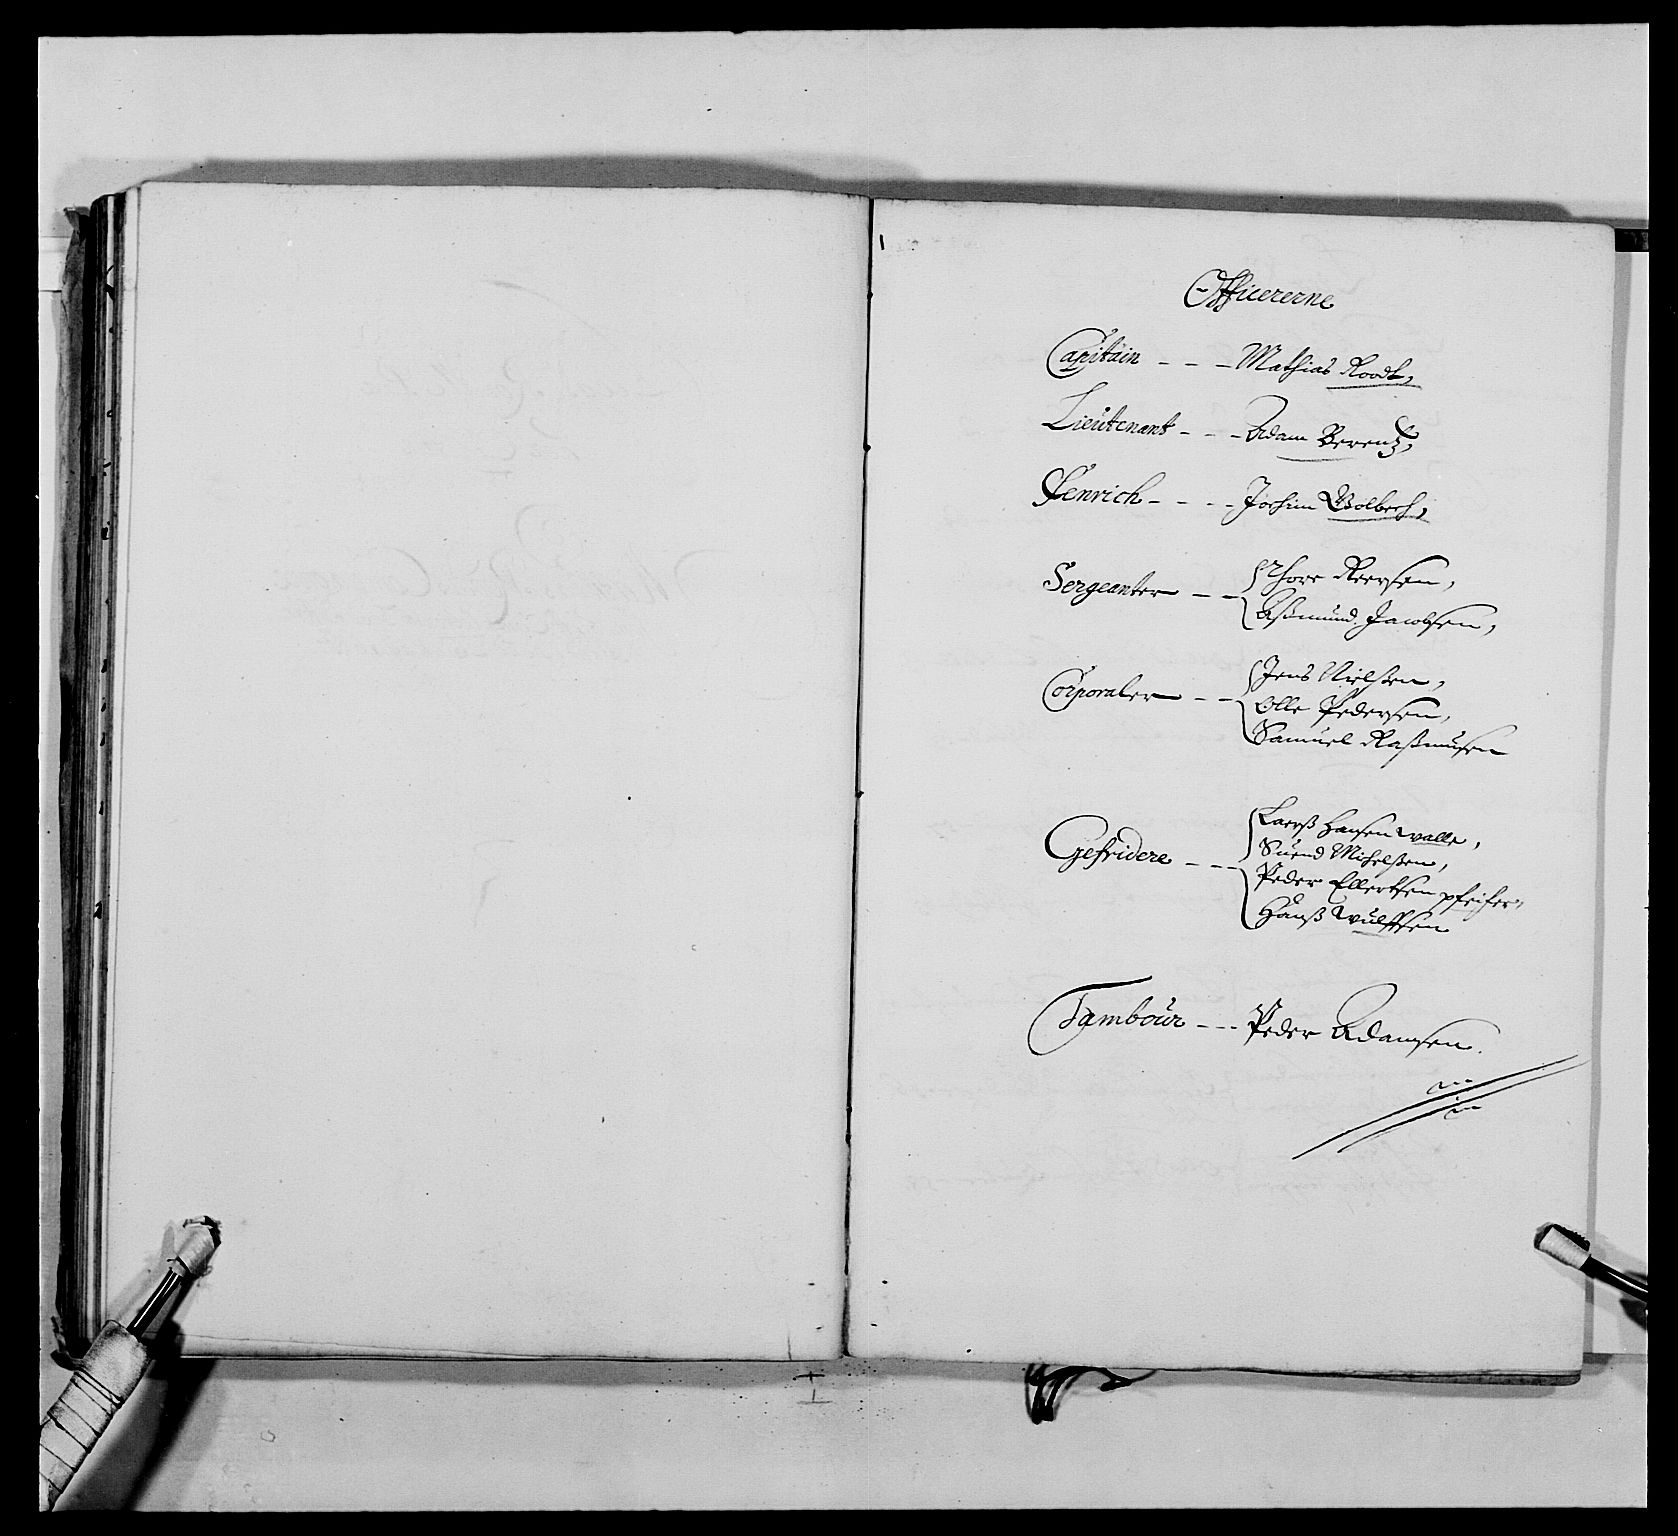 Officererne
Capitain - - - Mathias Roodt,
Lieutenant - - - Adam Berentz,
Fenrich - - - - Jochim Bolbech,
Sergeanter - - Thore Reersen,
Aßmund Jacobsen,
Corporaler - - Jens Nielßen,
Olle Pedersen,
Samuel Raßmusen
Gefridere - - - Laerß Hansen Walle,
Suend Michelßen,
Peder Ellertsen pfeifer,
Hanß Wulffsen
Tambour - - - Peder Adamsen.